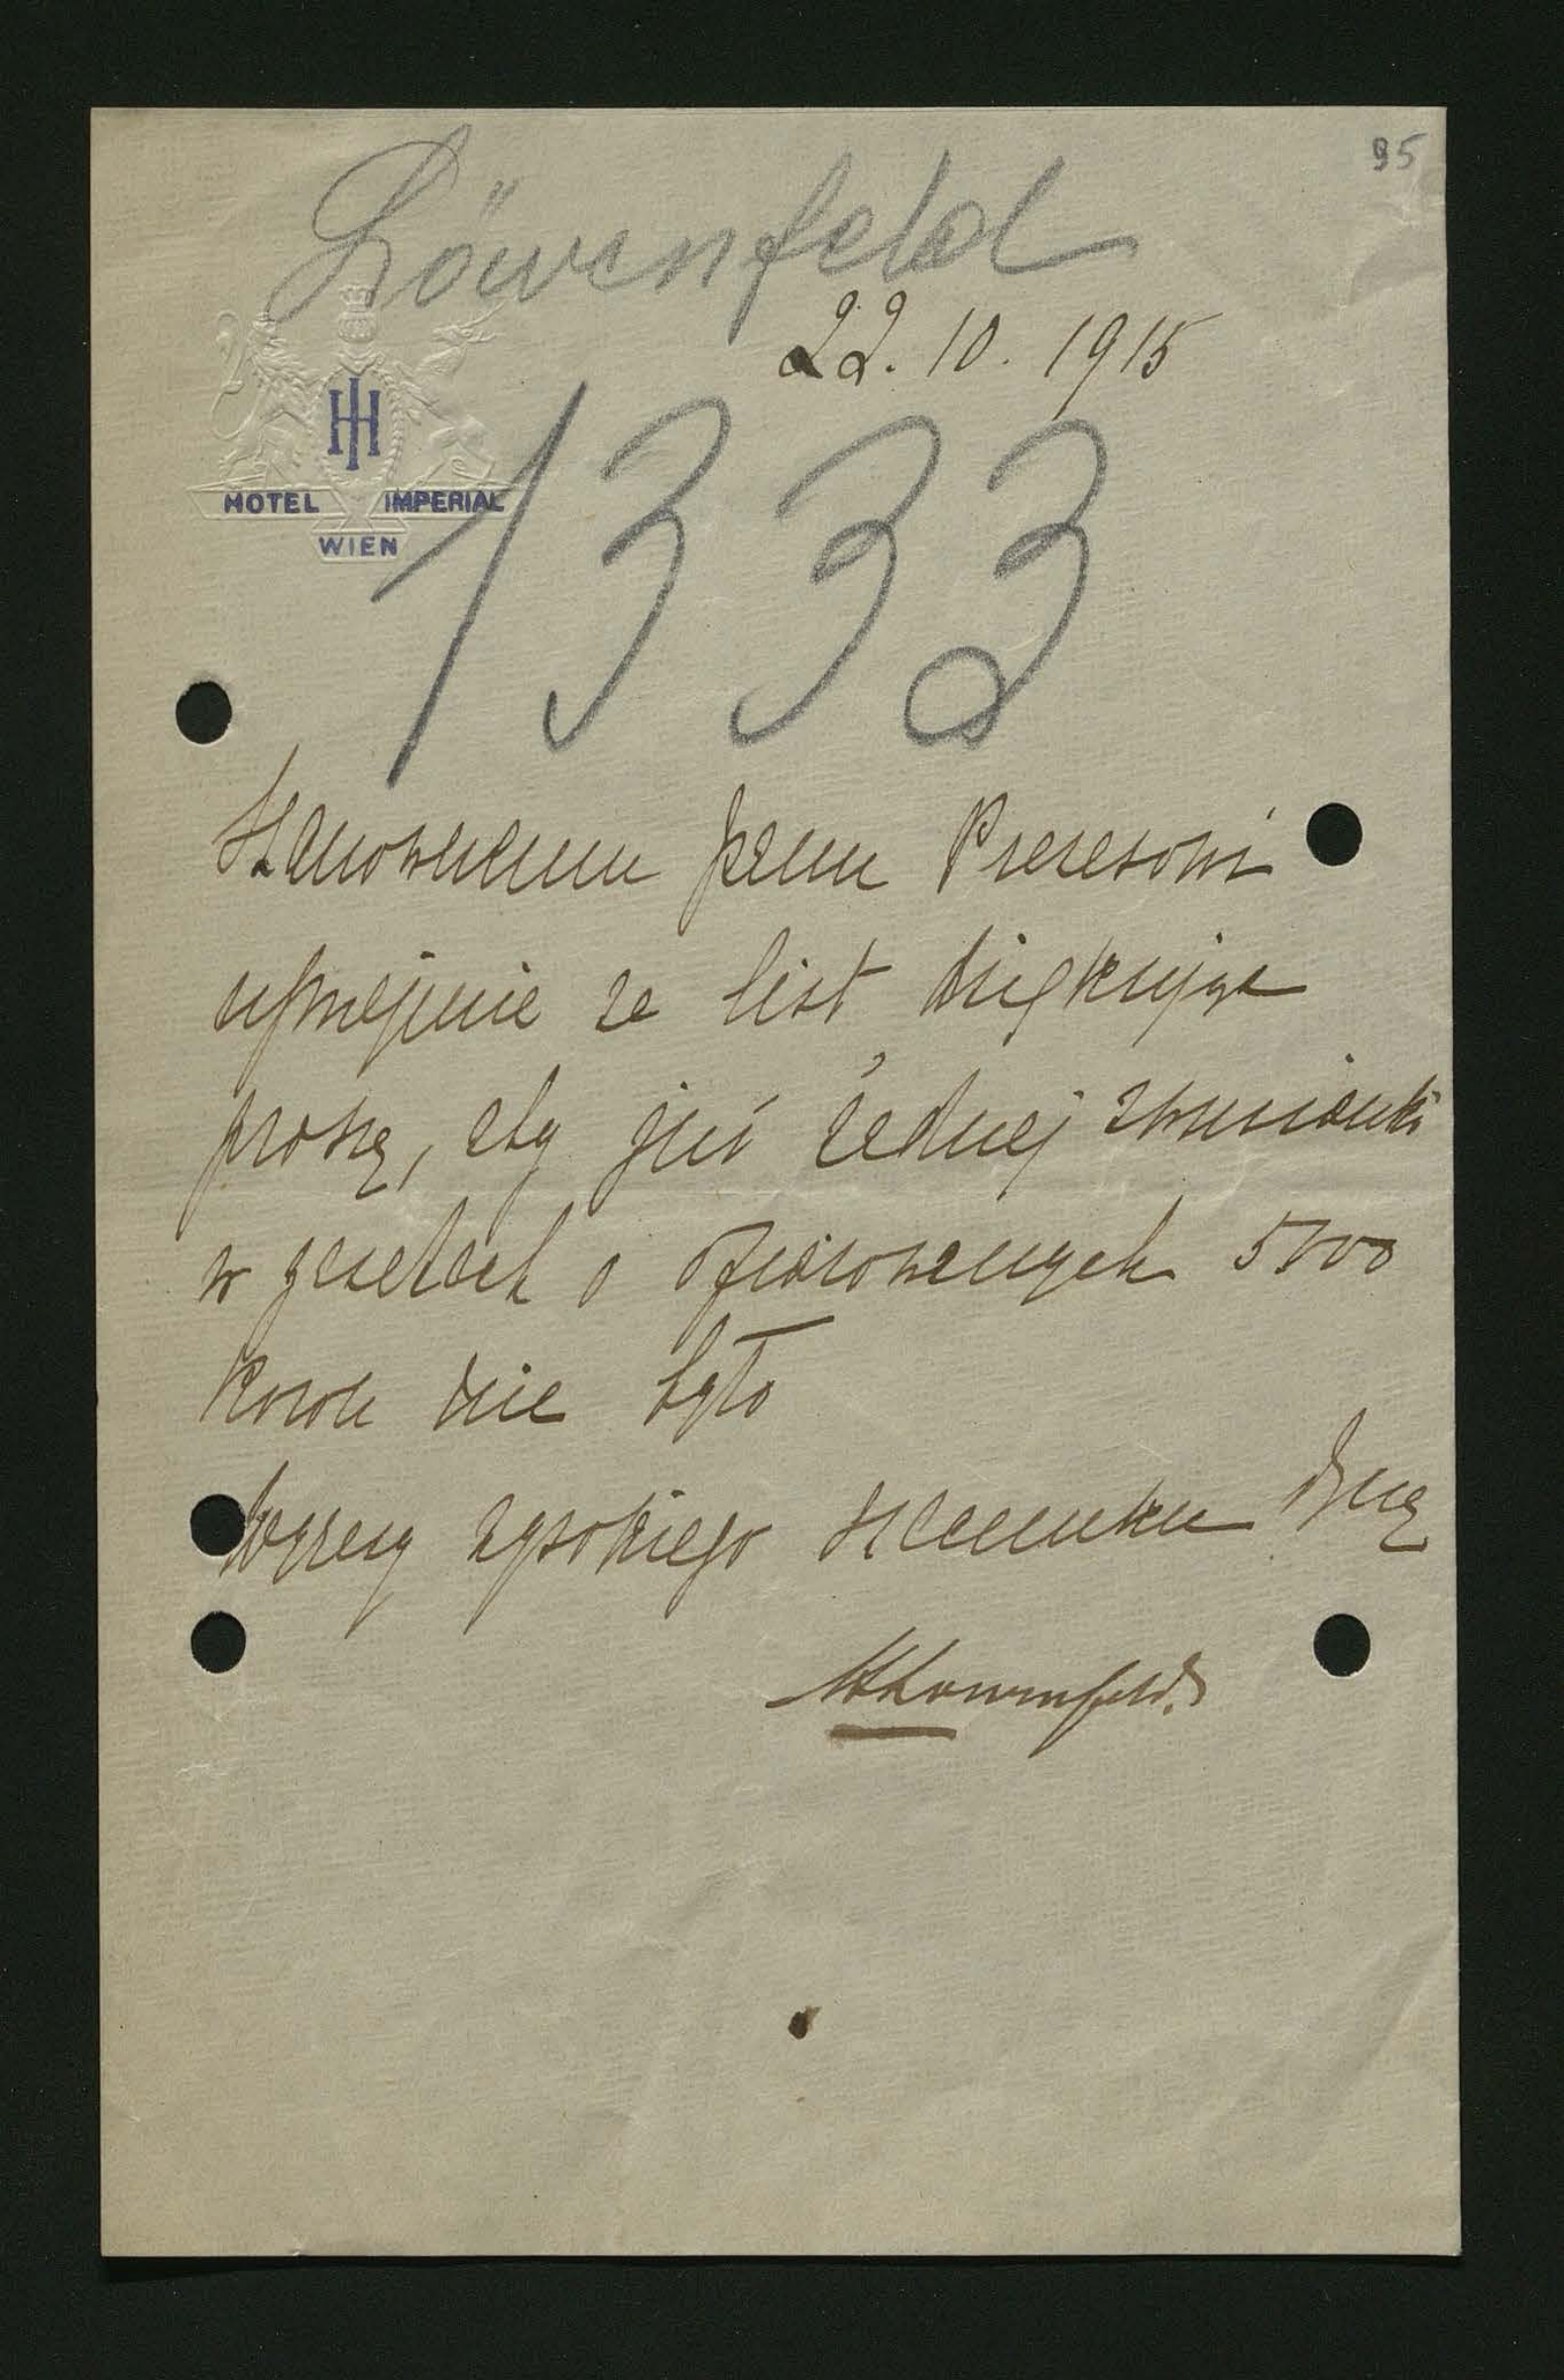 95
Löwenfeld
22. 10. 1915
HI
HOTEL IMPERIAL
WIEN
1333
Szanownemu panu Prezesowi
uprzejmie za list dziękując
proszę, aby już żadnej wzmianki
w gazetach o ofiarowanych 5000
koron nie było
Wyrazy wysokiego szacunku
Löwenfeld